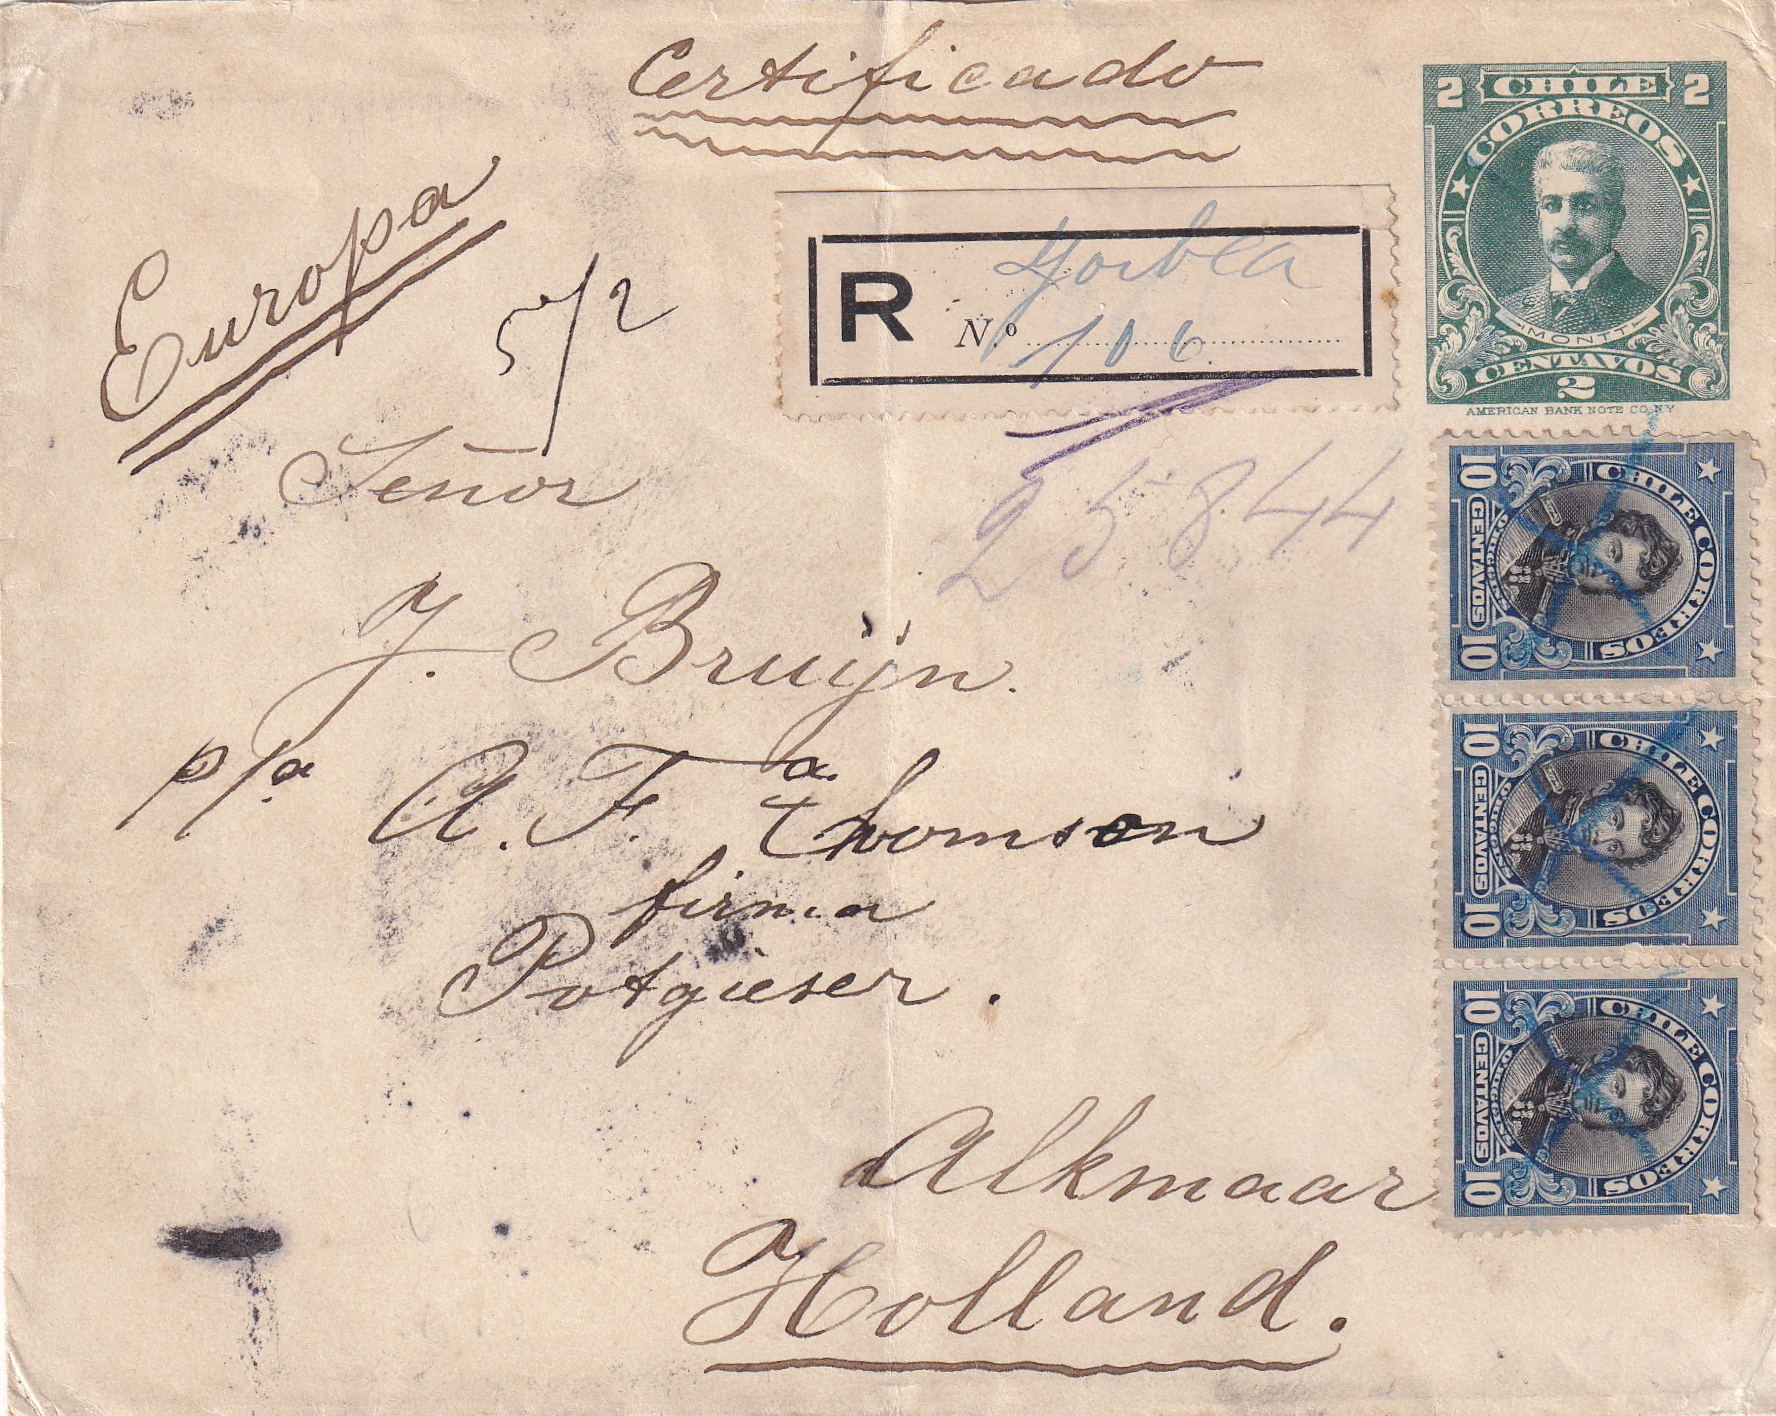 Certificado
Europa
5/2
R
Nº 106
25844
2 CHILE 2
CORREOS
MONTT
CENTAVOS
2
AMERICAN BANK NOTE CO. NY
Señor
J. Bruijn.
p/a A. F.a Thomson
firma
Potgieser.
Alkmaar
Holland.
CHILE CORREOS
10 CENTAVOS 10
CHILE CORREOS
10 CENTAVOS 10
CHILE CORREOS
10 CENTAVOS 10